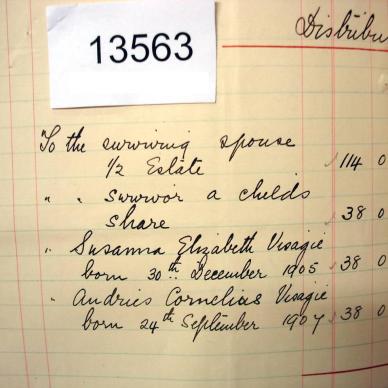 13563
Distribu
To the surviving spouse
1/2 Estate 114 0
" " Survivor a childs
share 38 0
" Susanna Elizabeth Visagie
born 30th December 1905 38 0
" Andries Cornelius Visagie
born 24th September 1907 38 0